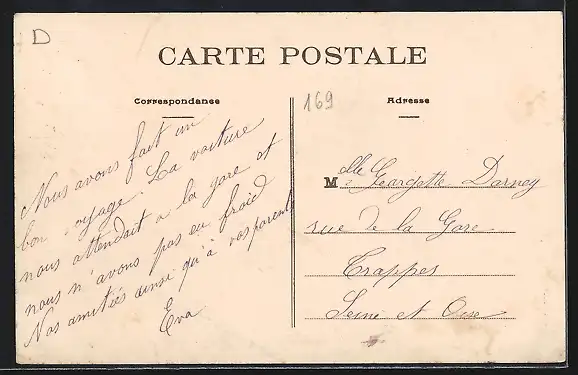 D
CARTE POSTALE
Correspondance
169
Adresse
Nous avons fait un
bon voyage. La voiture
nous attendait a la gare et
nous n'avons pas eu froid
Nos amitiés ainsi qu'à vos parents
Eva
Mlle Georgette Darney
rue de la Gare
Trappes
Seine et Oise